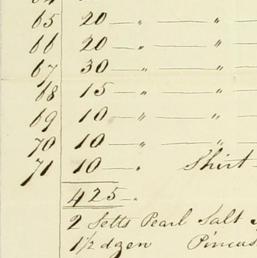 65 20 — " — "
66 20 — " — "
67 30 — " — "
68 15 — " — "
69 10 — " — "
70 10 — " — "
71 10 — " Shirt
425 —
2 Setts Pearl Salt
1½ dozen